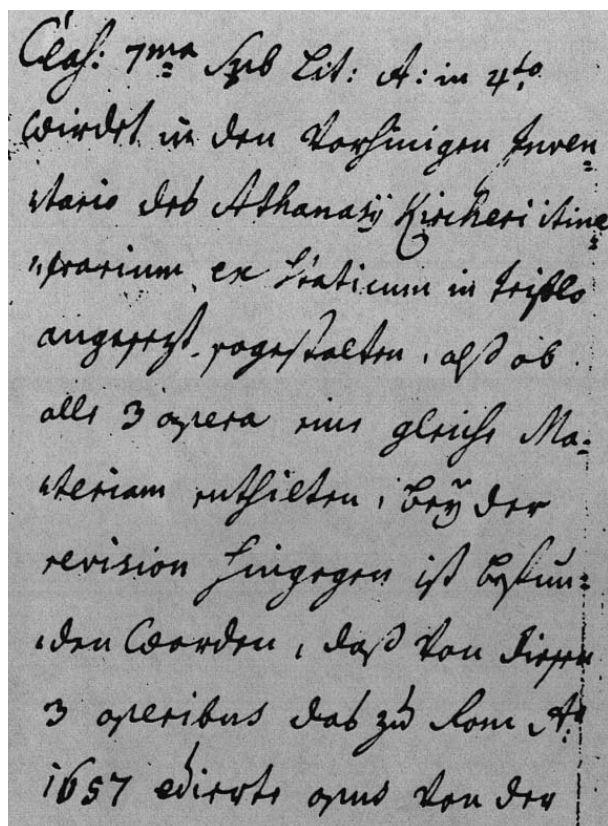 Claß: 7ma Sub Lit: A: in 4to
wirdet in den Vorhinigen Inven=
tario deß Athanasij Kircheri itine=
rarium exstaticum in triplo
angesezt sogestalten, alß ob
alle 3 opera eine gleiche Ma=
teriam enthilten, beÿ der
revision hingegen ist befun=
den worden, daß von diesen
3 operibus das zu Rom Ao:
1657 edierte opus von der